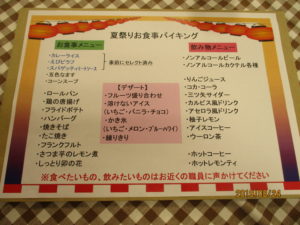 夏祭りお食事バイキング
お食事メニュー
・カレーライス
・えびピラフ
・スパゲッティミートソース
事前にセレクト済み
・五色なます
・コーンスープ
・ロールパン
・鶏の唐揚げ
・フライドポテト
・ハンバーグ
・焼きそば
・たこ焼き
・フランクフルト
・さつま芋のレモン煮
・しっとり卯の花
【デザート】
・フルーツ盛り合わせ
・溶けないアイス
(いちご・バニラ・チョコ)
・かき氷
(いちご・メロン・ブルーハワイ)
・練りきり
飲み物メニュー
・ノンアルコールビール
・ノンアルコールカクテル各種
・りんごジュース
・コカ・コーラ
・三ツ矢サイダー
・カルピス風ドリンク
・アセロラ風ドリンク
・柚子レモン
・アイスコーヒー
・ウーロン茶
・ホットコーヒー
・ホットレモンティ
※食べたいもの、飲みたいものはお近くの職員に声かけてください